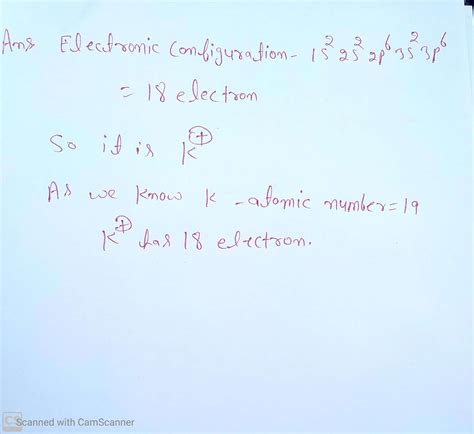 Ans Electronic configuration - 1s² 2s² 2p⁶ 3s² 3p⁶
= 18 electron
So it is K⁺
As we know K - atomic number = 19
K⁺ has 18 electron.
CS Scanned with CamScanner